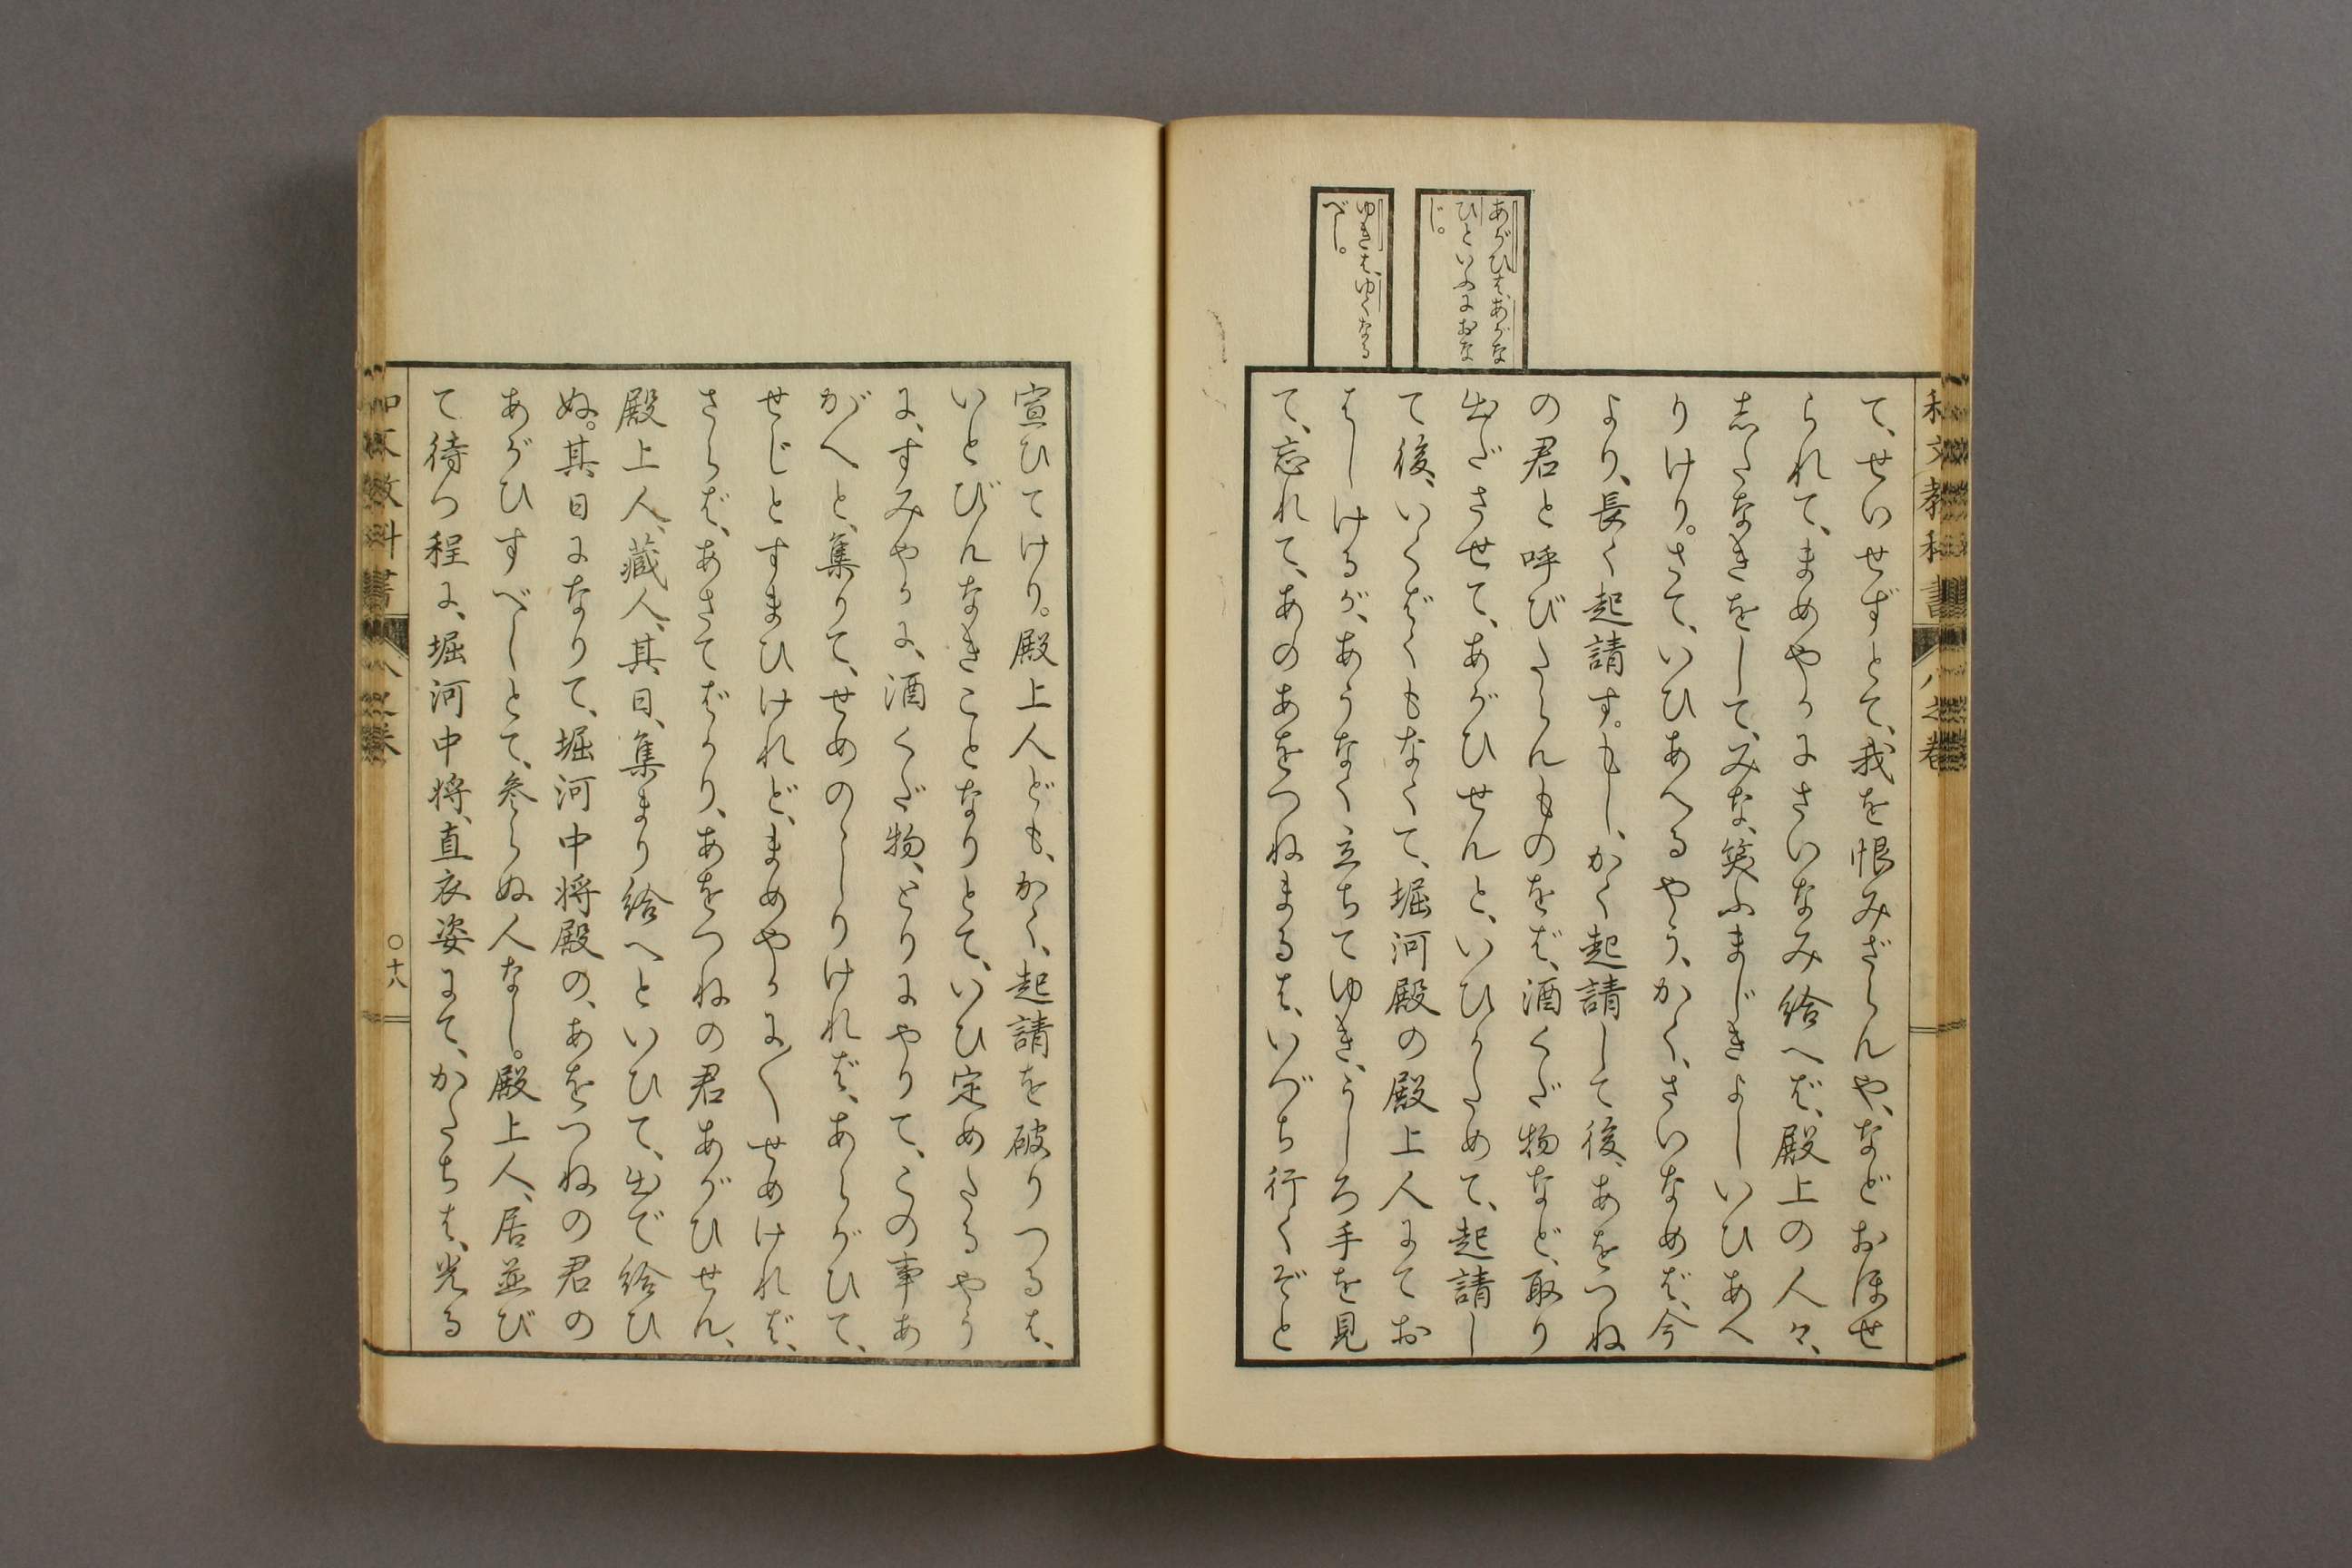 和文教科書 八之巻
あがひは、あがな
ひといふにおな
じ。
ゆきは、ゆくなる
べし。
て、せいせずとて、我を恨みざらんや、などおほせ
られて、まめやかにさいなみ給へば、殿上の人々、
志たなきをして、みな、笑ふまじきよしいひあへ
りけり。さて、いひあへるやう、かく、さいなめば、今
より、長く起請す。もし、かく起請して後、あをつね
の君と呼びたらんものをば、酒くだ物など、取り
出ださせて、あがひせんと、いひかためて、起請し
て後、いくばくもなくて、堀河殿の殿上人にてお
はしけるが、あうなく立ちてゆき、うしろ手を見
て、忘れて、あのあをつねまるは、いづち行くぞと
宣ひてけり。殿上人ども、かく、起請を破りつるは、
いとびんなきことなりとて、いひ定めたるやう
に、すみやかに、酒くだ物、とりにやりて、この事あ
がへと、集りて、せめのゝしりければ、あらがひて、
せじとすまひけれど、まめやかに〱せめければ、
さらば、あさてばかり、あをつねの君あがひせん、
殿上人、蔵人、其日、集まり給へといひて、出で給ひ
ぬ。其日になりて、堀河中将殿の、あをつねの君の
あがひすべしとて、参らぬ人なし。殿上人、居並び
て待つ程に、堀河中将、直衣姿にて、かたちは、光る
和文教科書 八之巻 〇十八